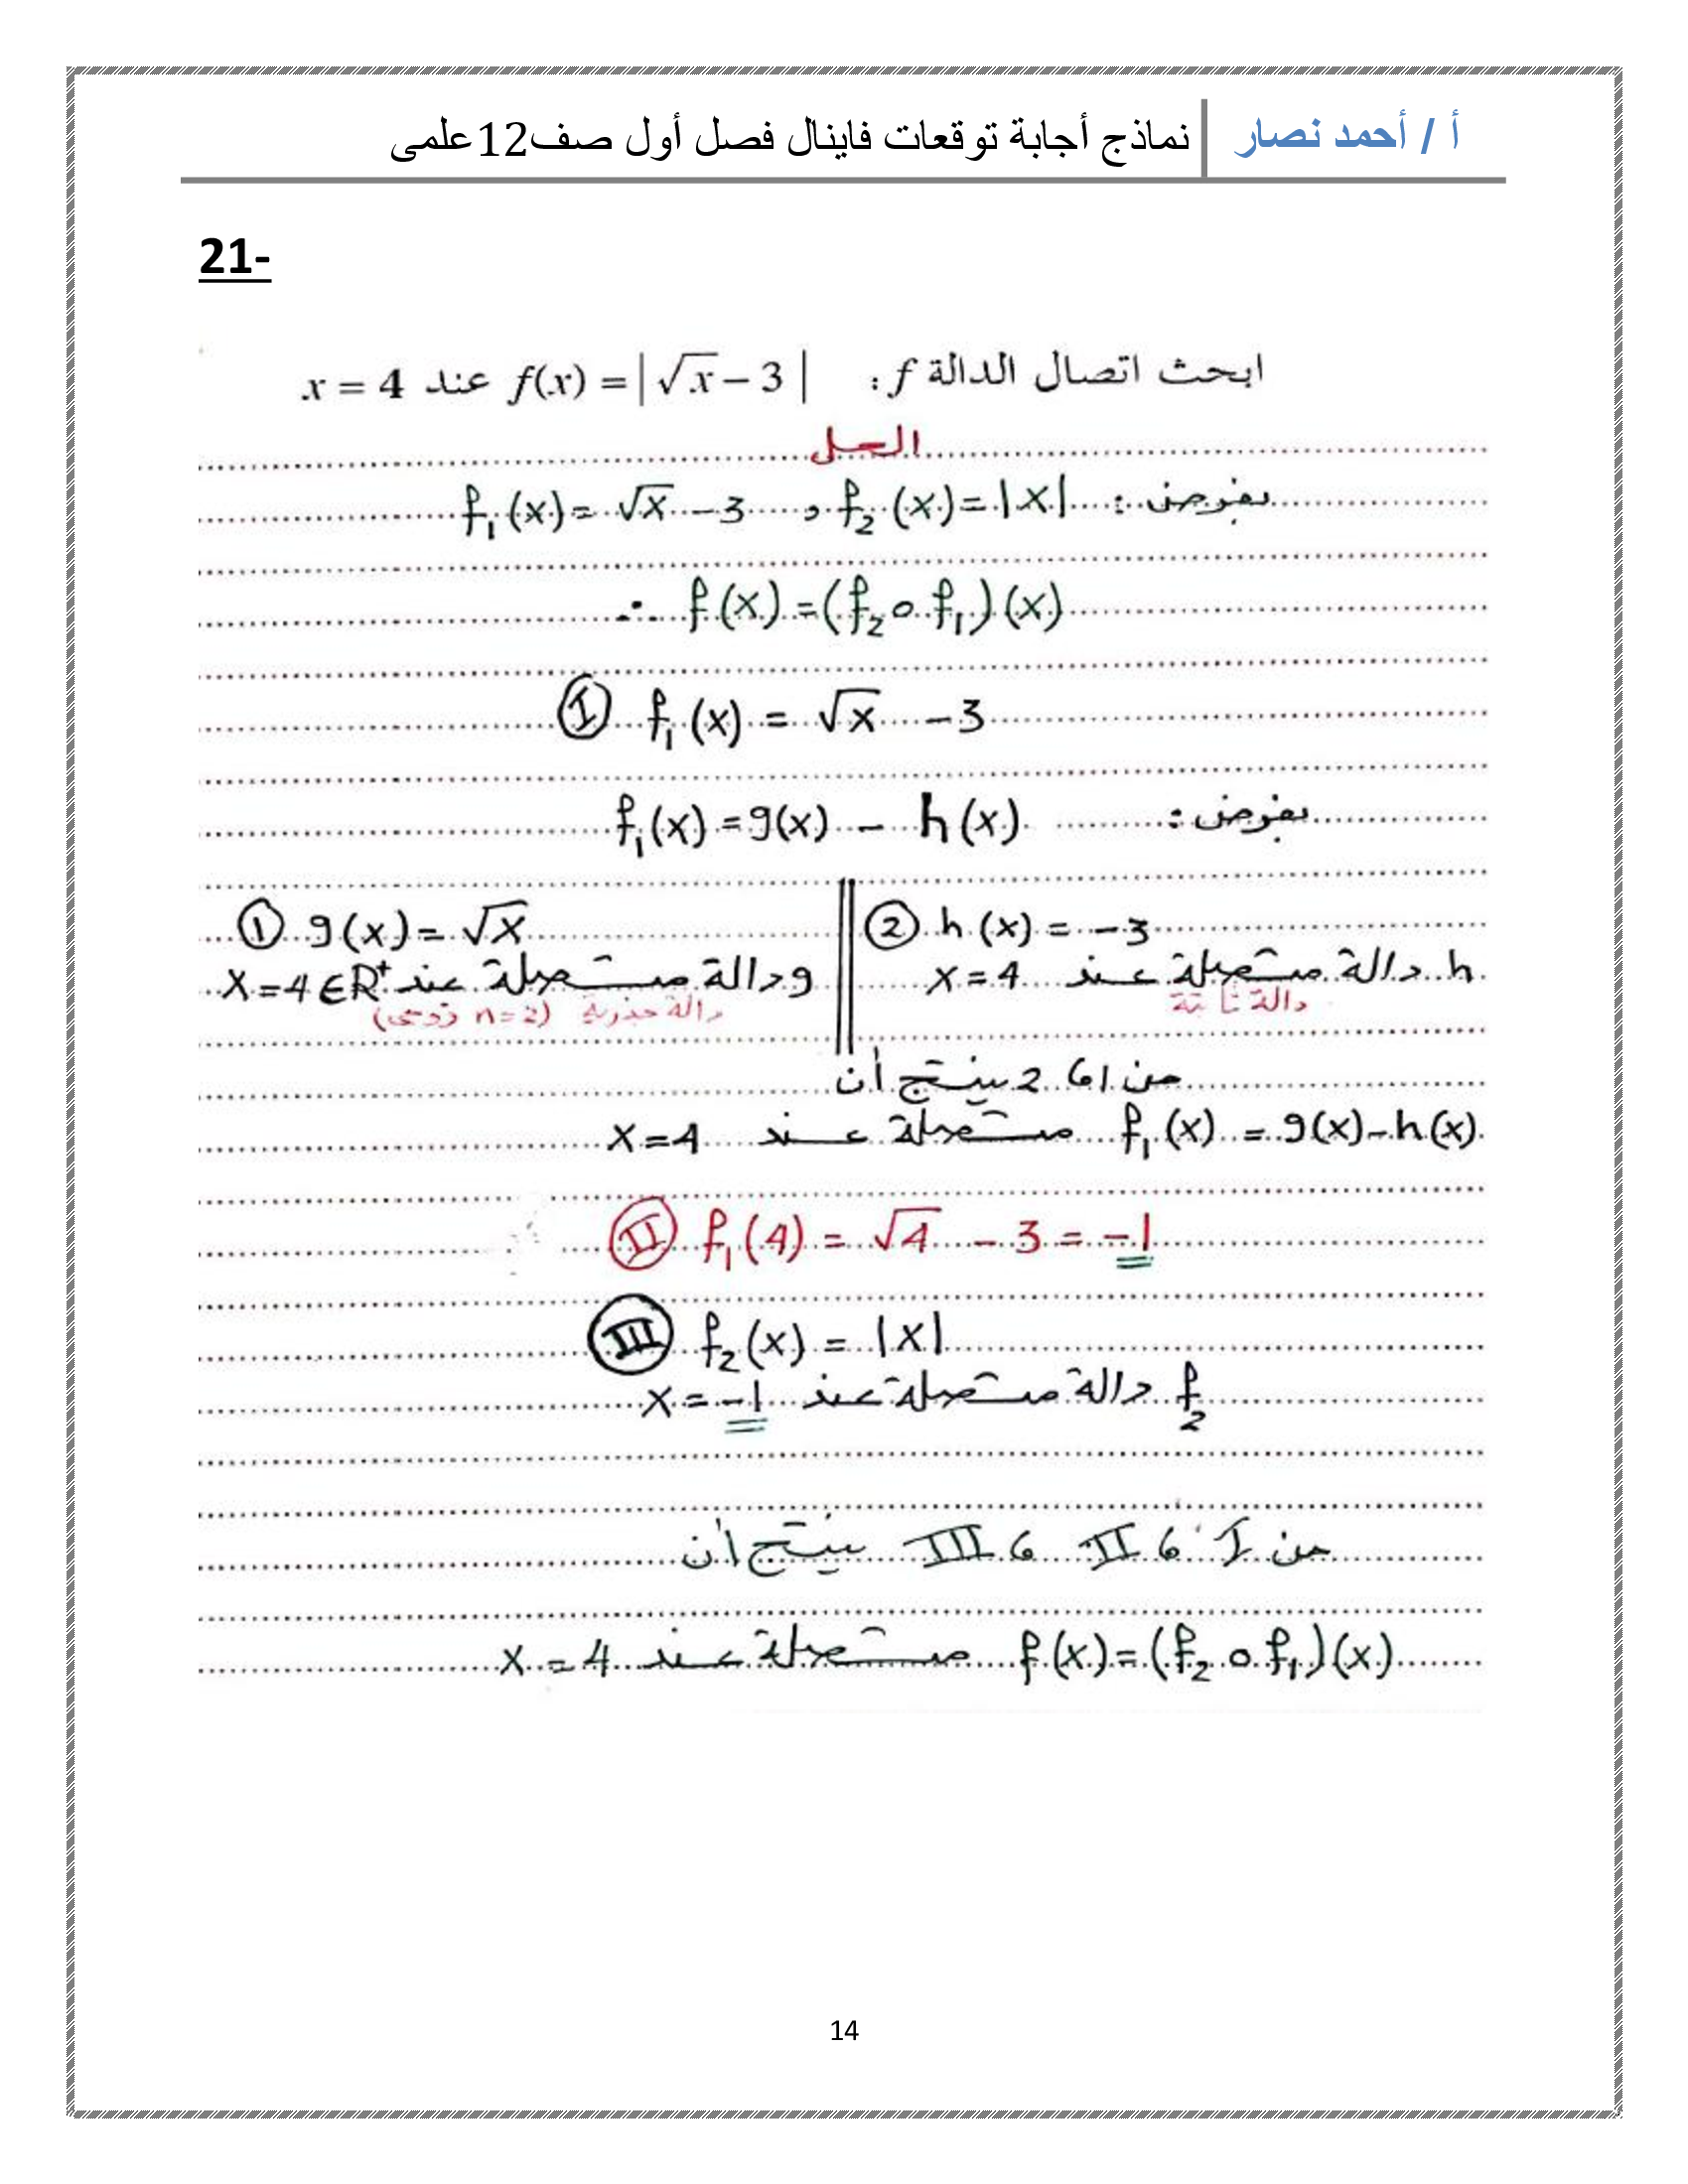 أ / أحمد نصار
نماذج أجابة توقعات فاينال فصل أول صف12علمى
21-
ابحث اتصال الدالة f : f(x) = | √x − 3 | عند x = 4
الحل
بفرض : f₂(x) = |x| و f₁(x) = √x − 3
∴ f(x) = (f₂ ∘ f₁)(x)
Ⅰ f₁(x) = √x − 3
بفرض : f₁(x) = g(x) − h(x)
① g(x) = √x
g دالة متصلة عند x = 4 ∈ R⁺
دالة جذرية (n = 2 زوجى)
② h(x) = −3
h دالة متصلة عند x = 4
دالة ثابتة
من 1 ، 2 ينتج أن
f₁(x) = g(x) − h(x) متصلة عند x = 4
Ⅱ f₁(4) = √4 − 3 = −1
Ⅲ f₂(x) = |x|
f₂ دالة متصلة عند x = −1
من Ⅰ ، Ⅱ ، Ⅲ ينتج أن
f(x) = (f₂ ∘ f₁)(x) متصلة عند x = 4
14